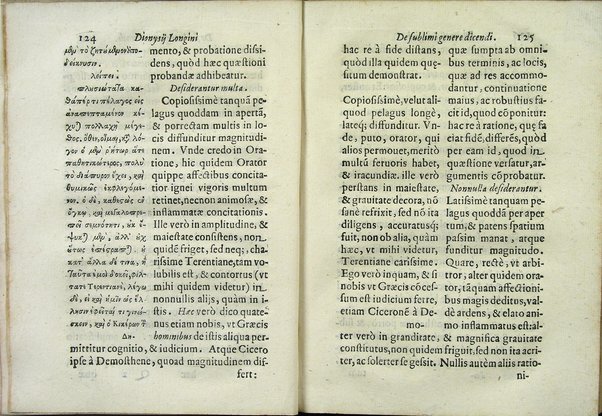 124 Dionysij Longini
μὲν τὸ ζητούμενον ὑπο-
δείκνυσιν.
λείπει.
πλουσιώτατα κα-
θάπερ τι πέλαγος εἰς
ἀναπεπταμένον κέ-
χυται πολλαχῆ μέγε-
θος. ὅθεν, οἶμαι, κατὰ λό-
γον ὁ μὲν ῥήτωρ ἅτε
παθητικώτερος, πολὺ
τὸ διάπυρον ἔχει, καὶ
θυμικῶς ἐκφλεγόμε-
νον. ὁ δὲ, καθεστὼς ἐν
ὄγκῳ, καὶ μεγαλοπρε-
πεῖ σεμνότητι, οὐκ ἔ-
ψυκται μὲν, ἀλλ' οὐχ
οὕτως ἐπέστραπται. οὐ
κατ' ἄλλα δέ τινα, ἢ
ταῦτα ἐμοὶ δοκεῖ, φίλ-
τατε Τερεντιανὲ, λέγω
δὲ, εἰ καὶ ἡμῖν ὡς Ἕλ-
λησιν ἐφεῖταί τι γινώ-
σκειν, καὶ ὁ Κικέρων τοῦ
Δη-
mento, & probatione dissi-
dens, quòd hæc quæstioni
probandæ adhibeatur.
Desiderantur multa.
Copiosissimè tanquã pe-
lagus quoddam in apertã,
& porrectam multis in lo-
cis diffunditur magnitudi-
nem. Vnde credo in Orati-
tione, hic quidem Orator
quippe affectibus concita-
tior ignei vigoris multum
retinet, necnon animosæ, &
inflammatæ concitationis.
Ille verò in amplitudine, &
maiestate consistens, non
quidé friget, sed neq; cha-
rissime Terentiane, tàm vo-
lubilis est, & contortus (vt
mihi quidem videtur) in
nonnullis alijs, quàm in i-
stis. Hæc verò dico quate-
nus etiam nobis, vt Græcis
hominibus de istis aliqua per-
mittitur cognitio, & iudicium. Atque Cicero
ipse à Demosthene, quoad magnitudinem dif-
fert:
De sublimi genere dicendi. 125
hac re à fide distans,
quòd illa quidem quę-
situm demonstrat.
Copiosissimè, velut ali-
quod pelagus longè,
lateq; diffunditur. Vn-
de, puto, orator, qui
alios permouet, meritò
multũ feruoris habet,
& iracundiæ. ille verò
perstans in maiestate,
& grauitate decora, nõ
sanè refrixit, sed nõ ita
diligens, accuratusq;
fuit, non ob alia, quàm
hæc, vt mihi videtur,
Terentiane carissime.
Ego verò inquam, & si
nobis, vt Græcis cõces-
sum est iudicium ferre,
etiam Ciceronẽ à De-
mo-
quæ sumpta ab omni-
bus terminis, ac locis,
quæ ad res accommo-
dantur, continuatione
maius, ac robustius fa-
cit id, quod cõponitur:
hac re à ratione, quę fa-
ciat fidẽ, differẽs, quòd
per eam id, quod in
quæstione versatur, ar-
gumentis cõprobatur.
Nonnulla desiderantur.
Latissimè tanquam pe-
lagus quoddã per aper-
tum, & patens spatium
passim manat, atque
funditur magnitudo.
Quare, rectè, vt arbi-
tror, alter quidem ora-
tor, tãquam affectioni-
bus magis deditus, val-
dè ardens, & elato ani-
mo inflammatus est: al-
ter verò in granditate, & magnifica grauitate
constitutus, non quidem friguit. sed non ita acri-
ter, ac solerter se gessit. Nullis autẽ malijs ratio-
ni-